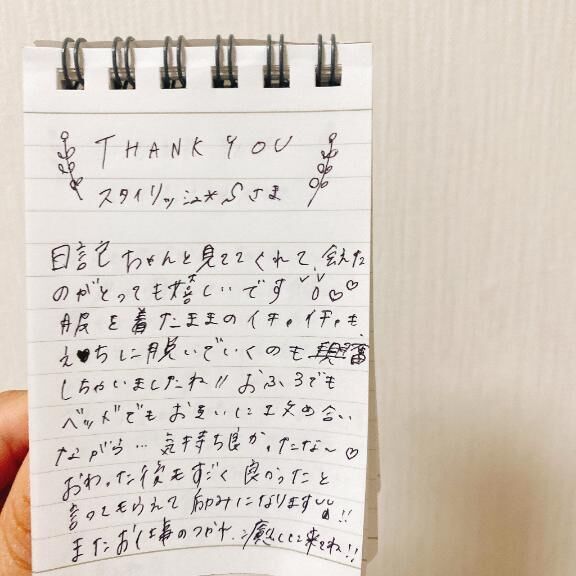 THANK YOU
スタイリッシュ*Sさま
日記ちゃんと見ててくれて、会えた
のがとっても嬉しいです♡♡
服を着たままのイチャイチャも、
え♥ちに脱いでいくのも興奮
しちゃいましたね!! おふろでも
ベッドでもお互いに攻め合い
ながら… 気持ち良かったな~♡
おわった後もすごく良かったと
言ってもらえて励みになります!!
またお仕事のつかれ癒しに来てね!!